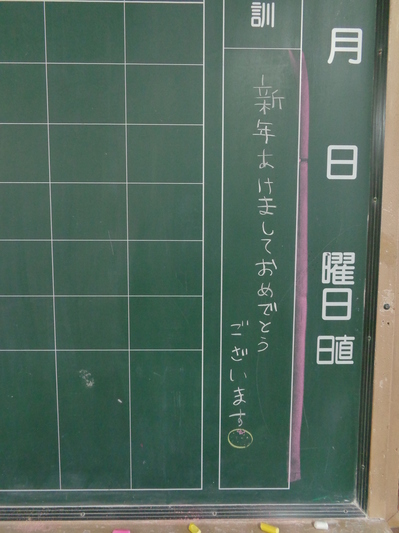 月 日 曜日
日直
訓
新年あけましておめでとう
ございます